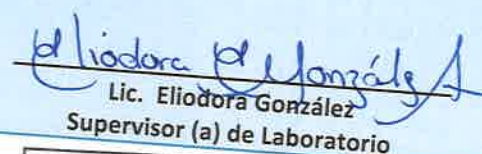 Eliodora E González A
Lic. Eliodora González
Supervisor (a) de Laboratorio